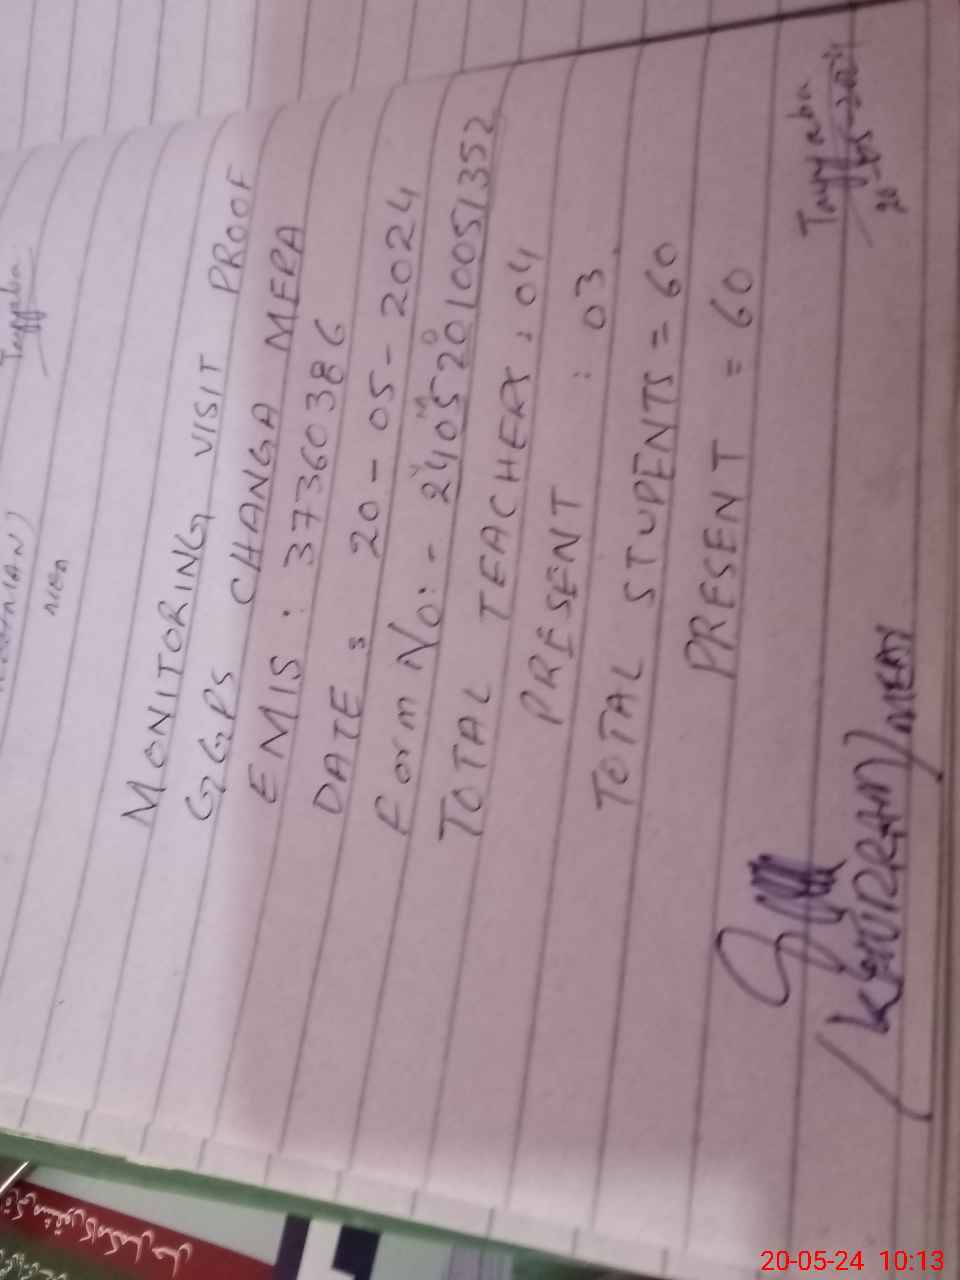 MONITORING VISIT PROOF
GGPS CHANGA MERA
EMIS : 37360386
DATE : 20-05-2024
Form No:- 24052010051352
TOTAL TEACHERS : 04
PRESENT : 03
TOTAL STUDENTS = 60
PRESENT = 60
Tayyaba
20-05-2024
(KHURRAM) MEA
Tayyaba
MEA
20-05-24 10:13